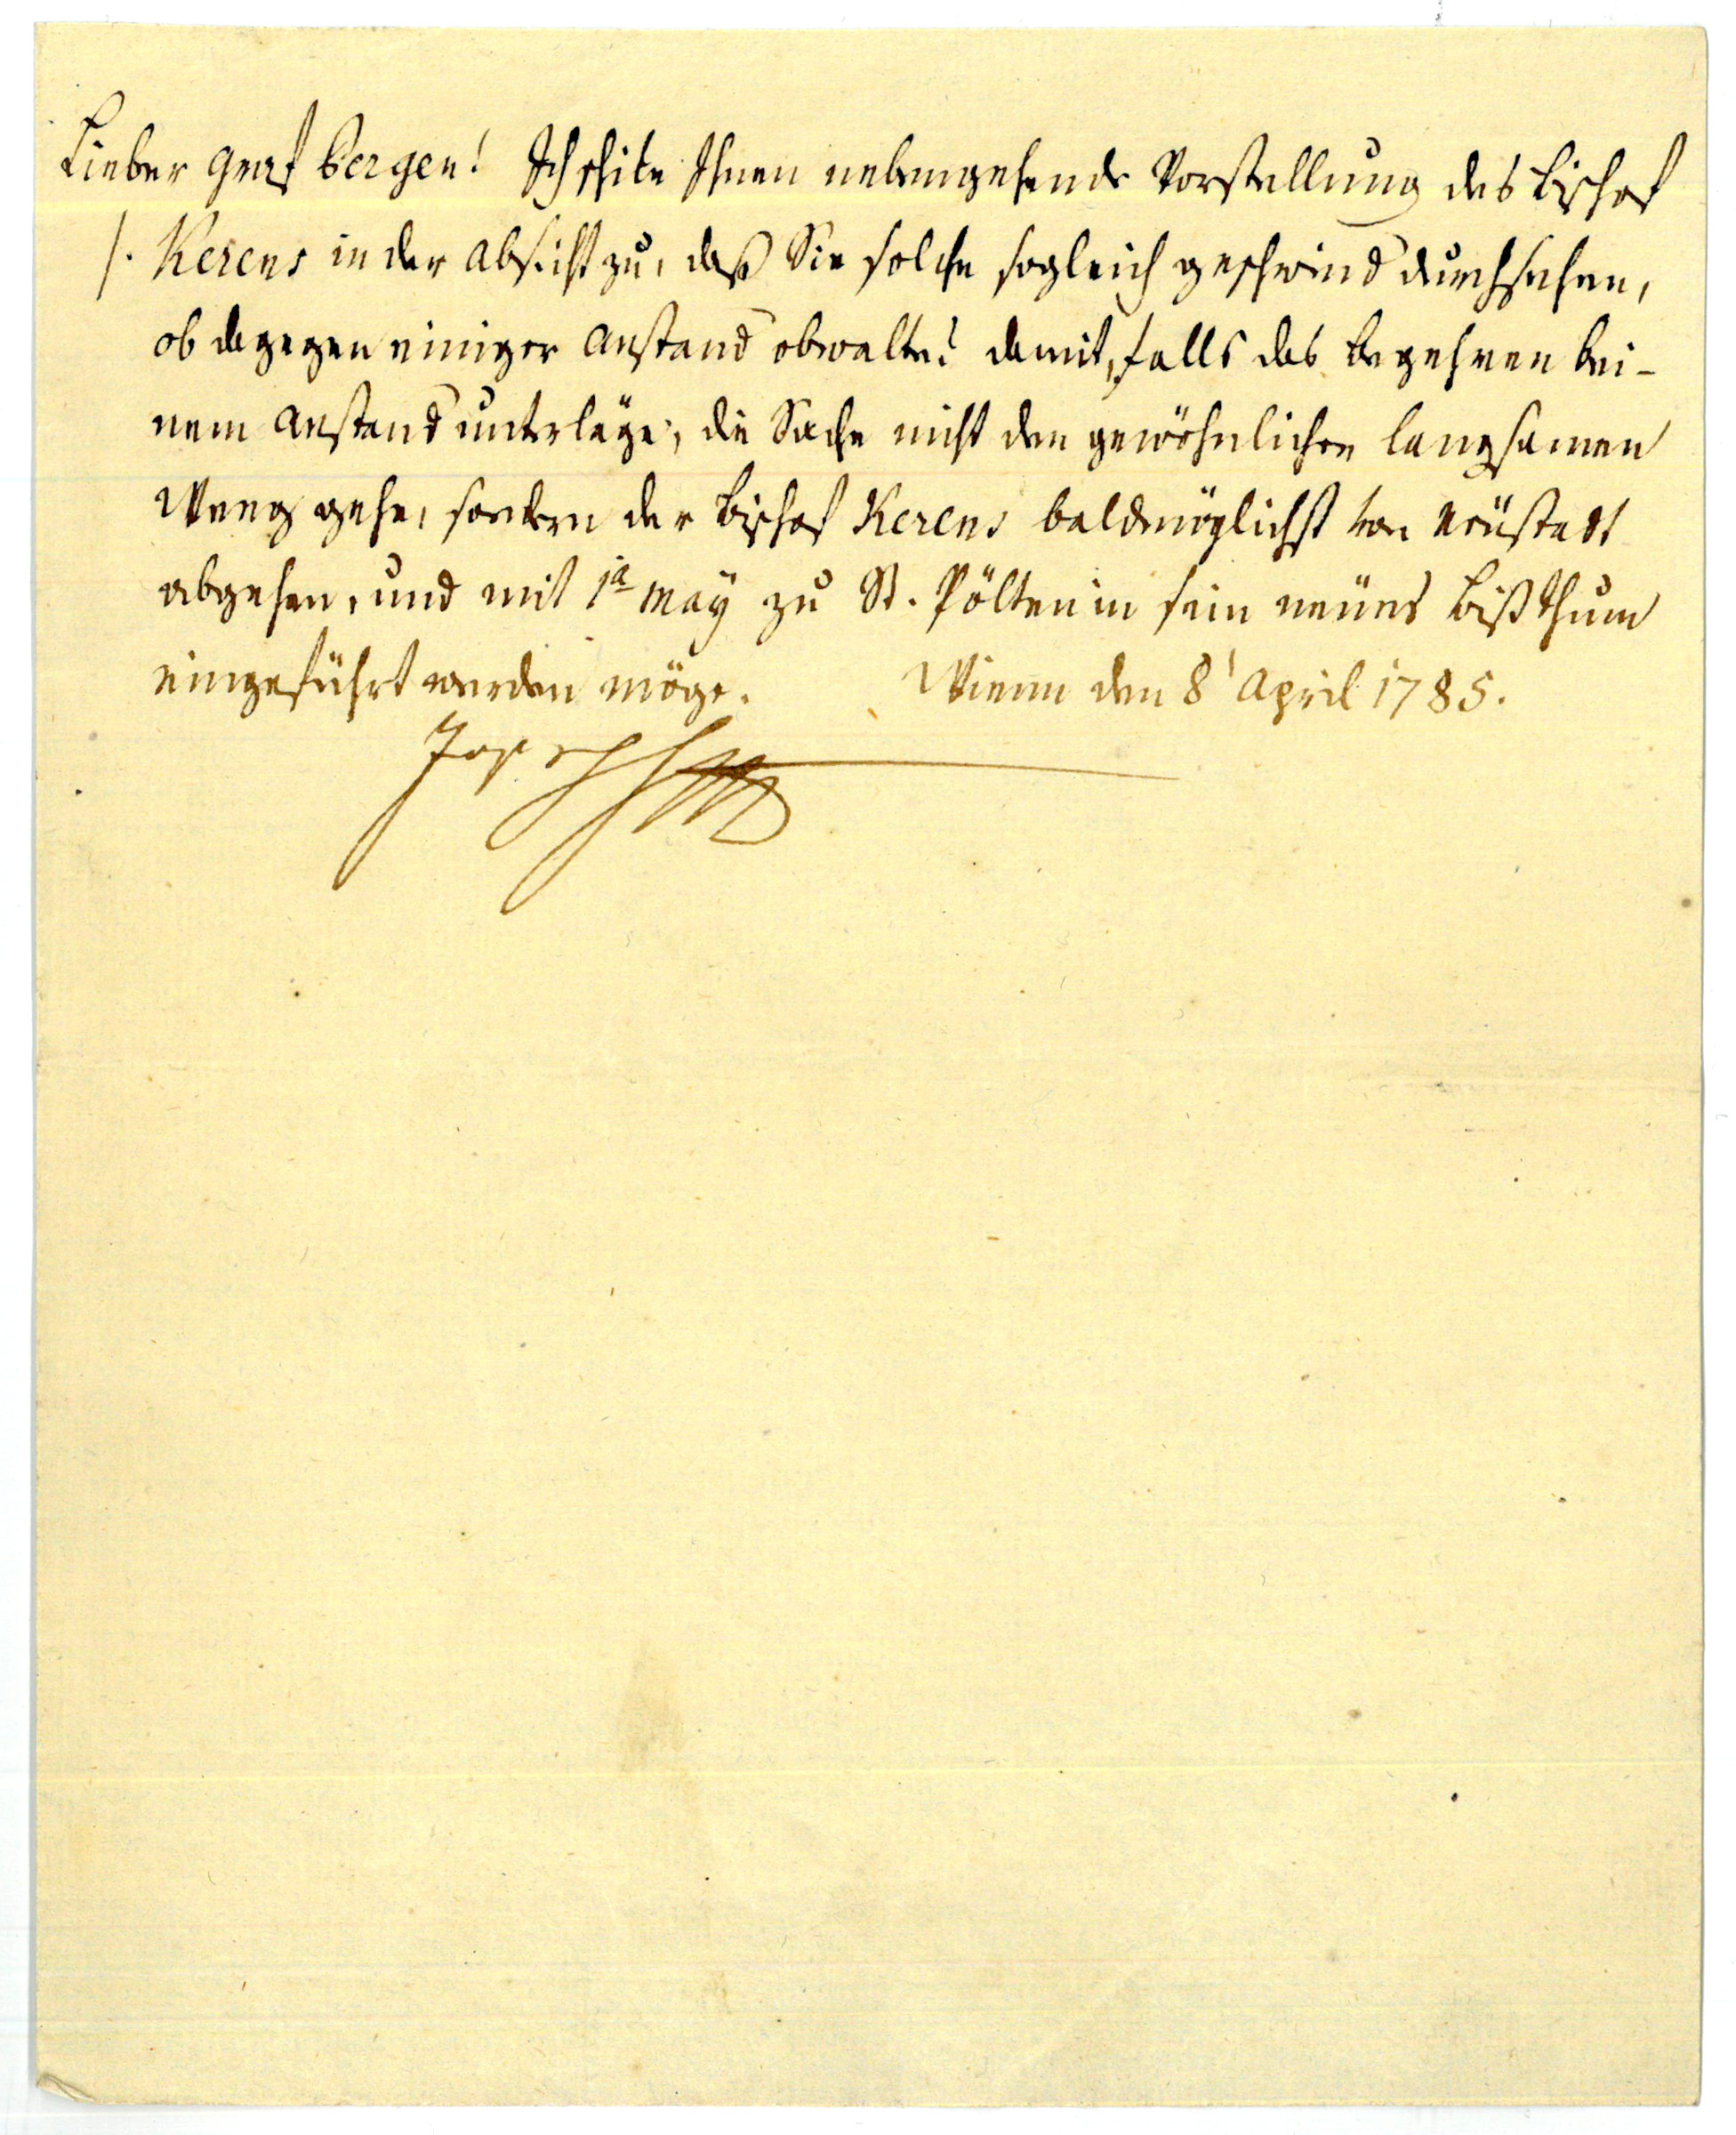 Lieber Graf Bergen! Ich schike Ihnen nebengehende Vorstellung des Bischof
/. Kerens in der Absicht zu, daß Sie solche sogleich geschwind durchsehen,
ob dagegen einiger Anstand obwalte? damit, falls das Begehren kei-
nem Anstand unterläge, die Sache nicht den gewöhnlichen langsamen
Weeg gehe, sondern der Bischof Kerens baldmöglichst von Neüstadt
abgehen, und mit 1a May zu St. Pölten in sein neües Bißthum
eingeführt werden möge. Wienn den 8t April 1785.
Joseph